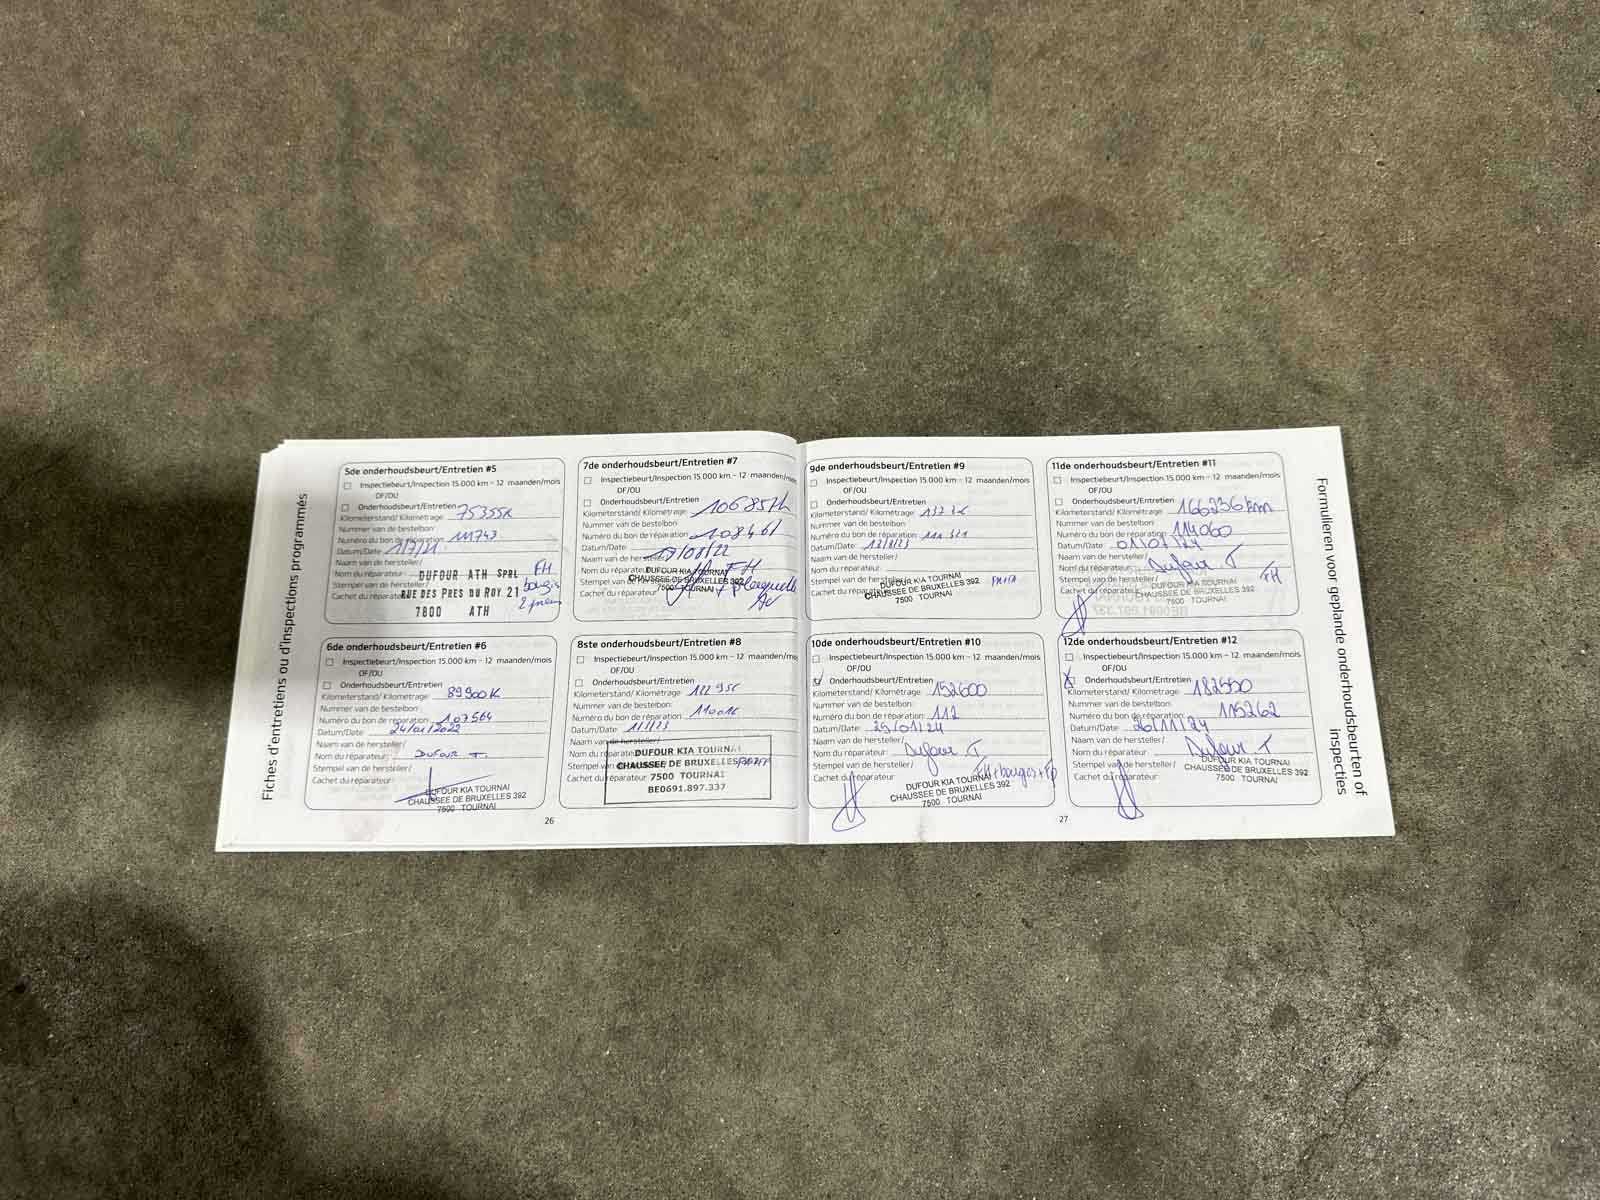 Fiches d'entretiens ou d'inspections programmés
5de onderhoudsbeurt/Entretien #5
Inspectiebeurt/Inspection 15.000 km – 12 maanden/mois
OF/OU
Onderhoudsbeurt/Entretien
Kilometerstand/ Kilométrage 75355k
Nummer van de bestelbon:
Numéro du bon de réparation 111743
Datum/Date 1/7/21
Naam van de hersteller/
Nom du réparateur: FH
Stempel van de hersteller/ bougies
Cachet du réparateur
DUFOUR ATH SPRL
RUE DES PRES DU ROY 21
7800 ATH
6de onderhoudsbeurt/Entretien #6
Inspectiebeurt/Inspection 15.000 km – 12 maanden/mois
OF/OU
Onderhoudsbeurt/Entretien
Kilometerstand/ Kilométrage 89900k
Nummer van de bestelbon:
Numéro du bon de réparation 107564
Datum/Date 24/01/2022
Naam van de hersteller/
Nom du réparateur: Dufour T.
Stempel van de hersteller/
Cachet du réparateur
DUFOUR KIA TOURNAI
CHAUSSEE DE BRUXELLES 392
7500 TOURNAI
26
7de onderhoudsbeurt/Entretien #7
Inspectiebeurt/Inspection 15.000 km – 12 maanden/
OF/OU
Onderhoudsbeurt/Entretien
Kilometerstand/ Kilométrage
Nummer van de bestelbon:
Numéro du bon de réparation 108461
Datum/Date
Naam van de hersteller/
Nom du réparateur: FH
Stempel van de
Cachet du réparateur
DUFOUR KIA TOURNAI
CHAUSSEE DE BRUXELLES 392
7500 TOURNAI
8ste onderhoudsbeurt/Entretien #8
Inspectiebeurt/Inspection 15.000 km – 12 maanden/m
OF/OU
Onderhoudsbeurt/Entretien
Kilometerstand/ Kilométrage
Nummer van de bestelbon:
Numéro du bon de réparation
Datum/Date
Naam van de hersteller/
Nom du réparateur
Stempel van
Cachet du réparateur
DUFOUR KIA TOURNAI
CHAUSSEE DE BRUXELLES
7500 TOURNAI
BE0691.897.337
9de onderhoudsbeurt/Entretien #9
Inspectiebeurt/Inspection 15.000 km – 12 maanden/mois
OF/OU
Onderhoudsbeurt/Entretien
Kilometerstand/ Kilométrage
Nummer van de bestelbon:
Numéro du bon de réparation
Datum/Date
Naam van de hersteller/
Nom du réparateur:
Stempel van de hersteller/
Cachet du réparateur
DUFOUR KIA TOURNAI
CHAUSSEE DE BRUXELLES 392
7500 TOURNAI
10de onderhoudsbeurt/Entretien #10
Inspectiebeurt/Inspection 15.000 km – 12 maanden/mois
OF/OU
Onderhoudsbeurt/Entretien
Kilometerstand/ Kilométrage 152600
Nummer van de bestelbon:
Numéro du bon de réparation 112
Datum/Date 25/01/24
Naam van de hersteller/
Nom du réparateur: Dufour T
Stempel van de hersteller/ FH+bougies+Fp
Cachet du réparateur
DUFOUR KIA TOURNAI
CHAUSSEE DE BRUXELLES 392
7500 TOURNAI
27
11de onderhoudsbeurt/Entretien #11
Inspectiebeurt/Inspection 15.000 km – 12 maanden/mois
OF/OU
Onderhoudsbeurt/Entretien
Kilometerstand/ Kilométrage 166236km
Nummer van de bestelbon:
Numéro du bon de réparation 114060
Datum/Date
Naam van de hersteller/
Nom du réparateur: Dufour T
Stempel van de hersteller/ FH
Cachet du réparateur:
DUFOUR KIA TOURNAI
CHAUSSEE DE BRUXELLES 392
7500 TOURNAI
12de onderhoudsbeurt/Entretien #12
Inspectiebeurt/Inspection 15.000 km – 12 maanden/mois
OF/OU
Onderhoudsbeurt/Entretien
Kilometerstand/ Kilométrage
Nummer van de bestelbon:
Numéro du bon de réparation 115262
Datum/Date 26/11/24
Naam van de hersteller/
Nom du réparateur: Dufour T
Stempel van de hersteller/
Cachet du réparateur
DUFOUR KIA TOURNAI
CHAUSSEE DE BRUXELLES 392
7500 TOURNAI
Formulieren voor geplande onderhoudsbeurten of
inspecties